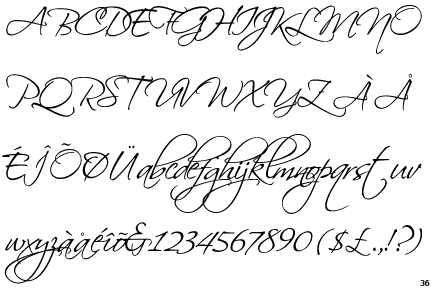 ABCDEFGHIJKLMNO
PQRSTUVWXYZÀÅ
ÉÎÕØÜabcdefghijklmnopqrstuv
wxyzàåéîõ&1234567890($£.,!?)
36